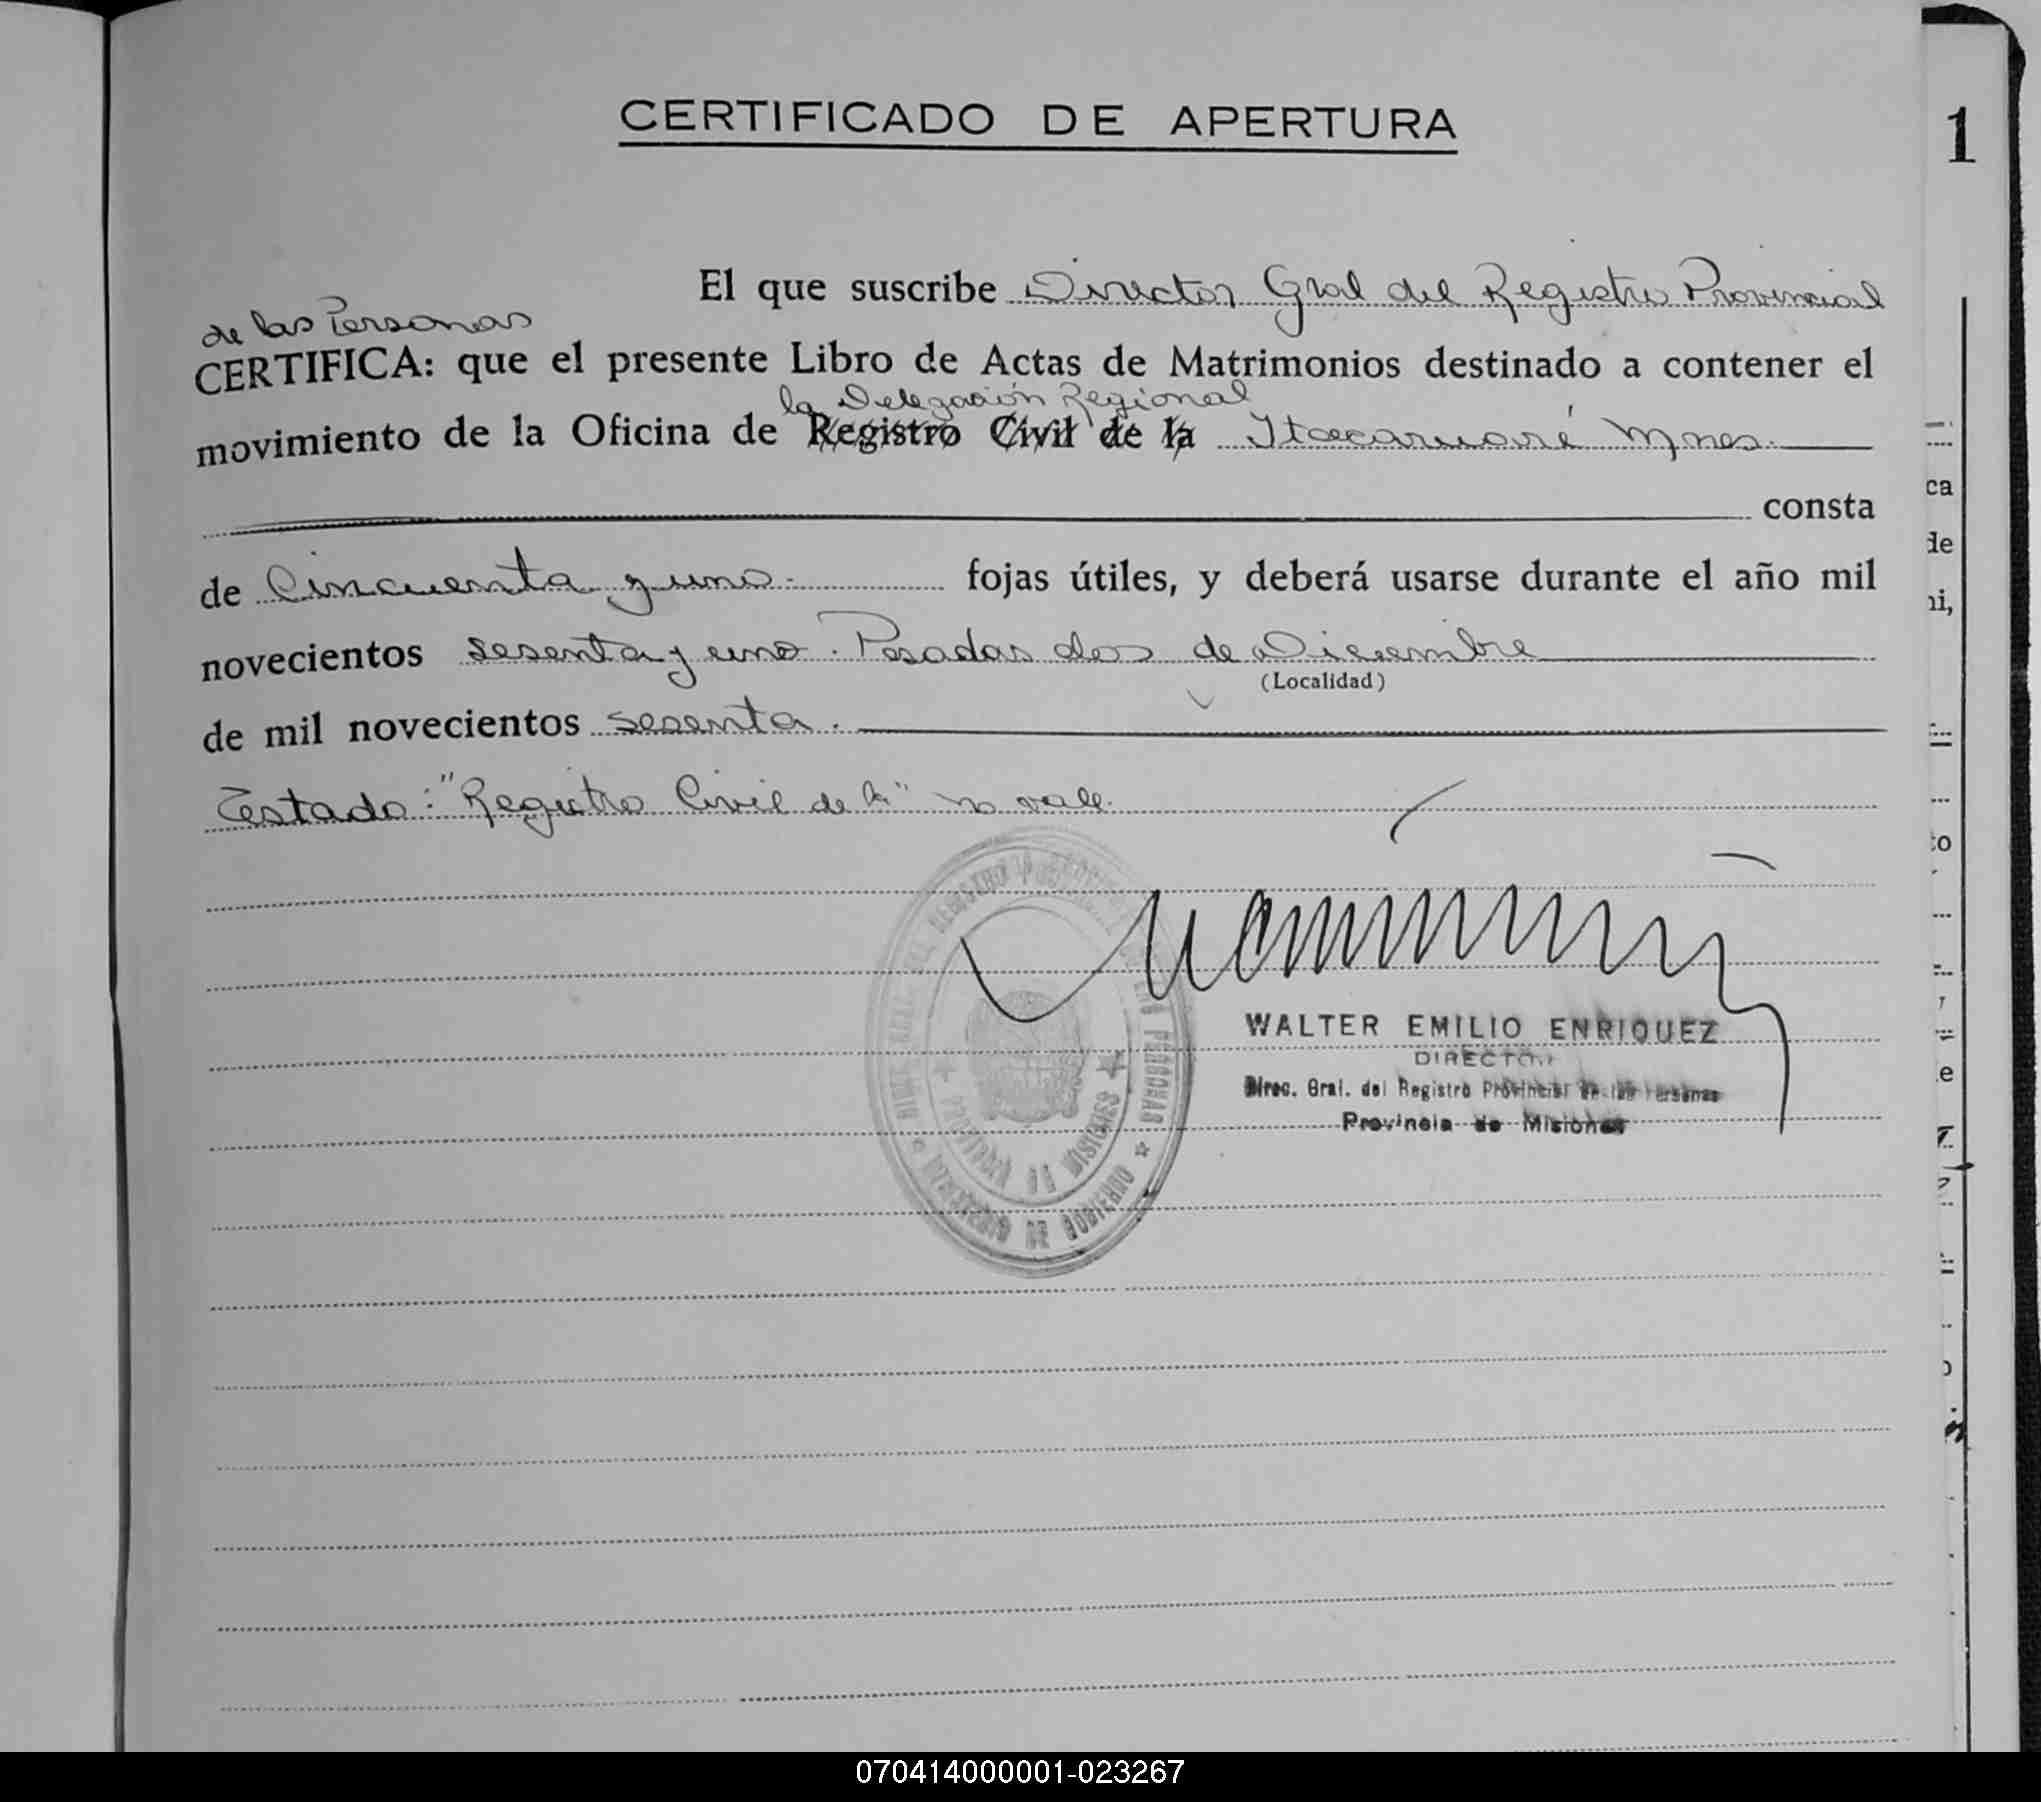 CERTIFICADO DE APERTURA
1
El que suscribe Director Gral del Registro Provincial
de las Personas
CERTIFICA: que el presente Libro de Actas de Matrimonios destinado a contener el
la Delegación Regional
movimiento de la Oficina de Registro Civil de la Itacaruaré Mnes.
consta
de Cincuenta y uno.- fojas útiles, y deberá usarse durante el año mil
novecientos sesenta y uno. Posadas dos de Diciembre
(Localidad)
de mil novecientos sesenta.
Testado: "Registro Civil de la" no vale.
WALTER EMILIO ENRIQUEZ
DIRECTOR
Direc. Gral. del Registro Provincial de las Personas
Provincia de Misiones
PROVINCIA DE MISIONES
MINISTERIO DE GOBIERNO
ca
de
ni,
to
e
070414000001-023267